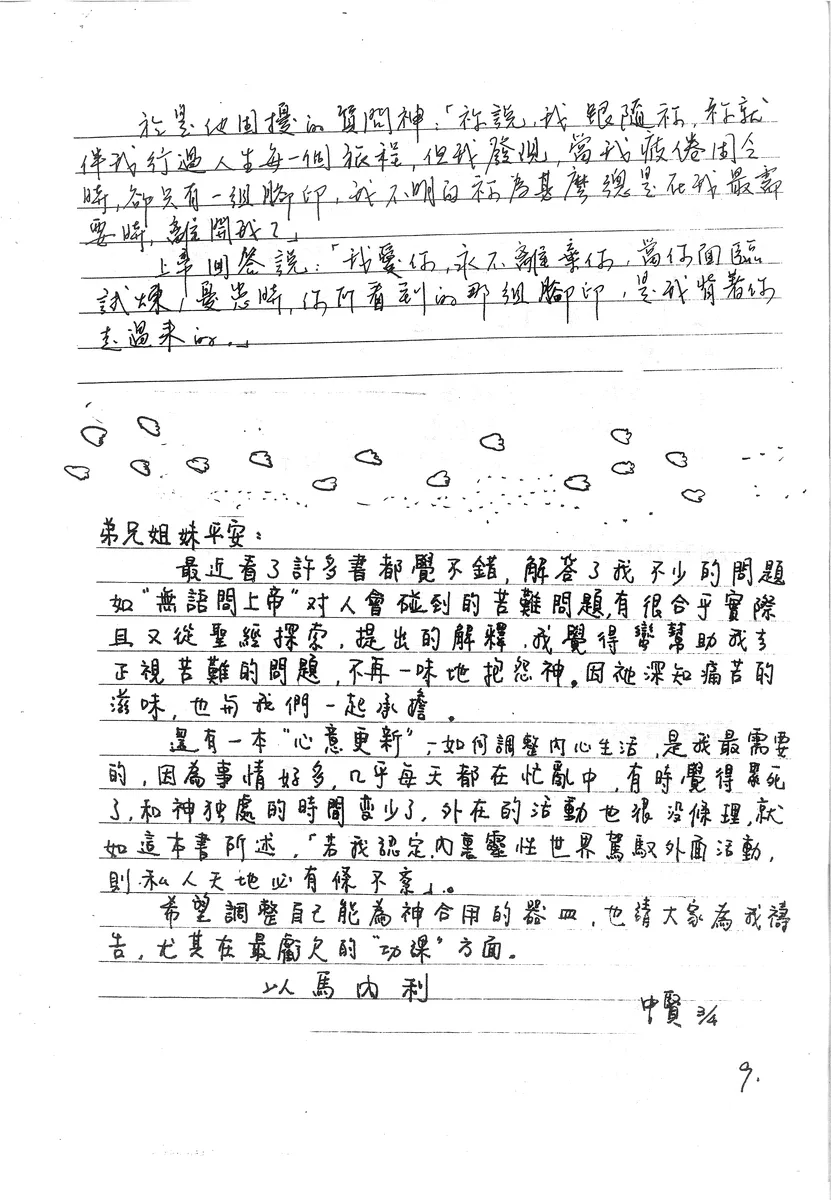 於是他困擾的質問神:「祢說,我跟隨祢,祢就
伴我行過人生每一個旅程,但我發現,當我疲倦困乏
時,卻只有一組腳印,我不明白祢為甚麼總是在我最需
要時,離開我了」
上帝回答說:「我愛你,永不離棄你,當你面臨
試煉,憂患時,你所看到的那組腳印,是我背著你
走過來的。」
弟兄姐妹平安:
最近看了許多書都覺不錯,解答了我不少的問題
如"無語問上帝"对人會碰到的苦難問題,有很合乎實際
且又從聖經探索,提出的解釋,我覺得蠻幫助我去
正視苦難的問題,不再一味地抱怨神。因祂深知痛苦的
滋味,也與我們一起承擔。
還有一本"心意更新",-如何調整內心生活,是我最需要
的,因為事情好多,几乎每天都在忙亂中,有時覺得累死
了,和神独處的時間变少了,外在的活動也很没條理,就
如這本書所述,「若我認定,內裏靈性世界駕馭外面活動,
則私人天地必有條不紊」。
希望調整自己能為神合用的器皿,也請大家為我禱
告,尤其在最虧欠的"功課"方面。
以馬內利
中賢 3/4
9.